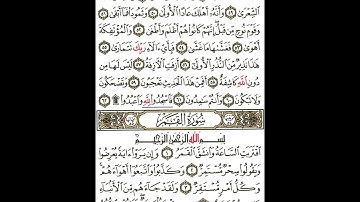 الشِّعْرَىٰ ٤٩ وَأَنَّهُۥ أَهْلَكَ عَادًا ٱلْأُولَىٰ ٥٠ وَثَمُودَا۟ فَمَآ أَبْقَىٰ ٥١
وَقَوْمَ نُوحٍ مِّن قَبْلُ إِنَّهُمْ كَانُوا۟ هُمْ أَظْلَمَ وَأَطْغَىٰ ٥٢ وَٱلْمُؤْتَفِكَةَ
أَهْوَىٰ ٥٣ فَغَشَّىٰهَا مَا غَشَّىٰ ٥٤ فَبِأَىِّ ءَالَآءِ رَبِّكَ تَتَمَارَىٰ ٥٥
هَٰذَا نَذِيرٌ مِّنَ ٱلنُّذُرِ ٱلْأُولَىٰ ٥٦ أَزِفَتِ ٱلْءَازِفَةُ ٥٧ لَيْسَ لَهَا مِن
دُونِ ٱللَّهِ كَاشِفَةٌ ٥٨ أَفَمِنْ هَٰذَا ٱلْحَدِيثِ تَعْجَبُونَ ٥٩ وَتَضْحَكُونَ
وَلَا تَبْكُونَ ٦٠ وَأَنتُمْ سَٰمِدُونَ ٦١ فَٱسْجُدُوا۟ لِلَّهِ وَٱعْبُدُوا۟ ۩ ٦٢
سُورَةُ ٱلْقَمَرِ
بِسْمِ ٱللَّهِ ٱلرَّحْمَٰنِ ٱلرَّحِيمِ
ٱقْتَرَبَتِ ٱلسَّاعَةُ وَٱنشَقَّ ٱلْقَمَرُ ١ وَإِن يَرَوْا۟ ءَايَةً يُعْرِضُوا۟
وَيَقُولُوا۟ سِحْرٌ مُّسْتَمِرٌّ ٢ وَكَذَّبُوا۟ وَٱتَّبَعُوٓا۟ أَهْوَآءَهُمْ
وَكُلُّ أَمْرٍ مُّسْتَقِرٌّ ٣ وَلَقَدْ جَآءَهُم مِّنَ ٱلْأَنۢبَآءِ